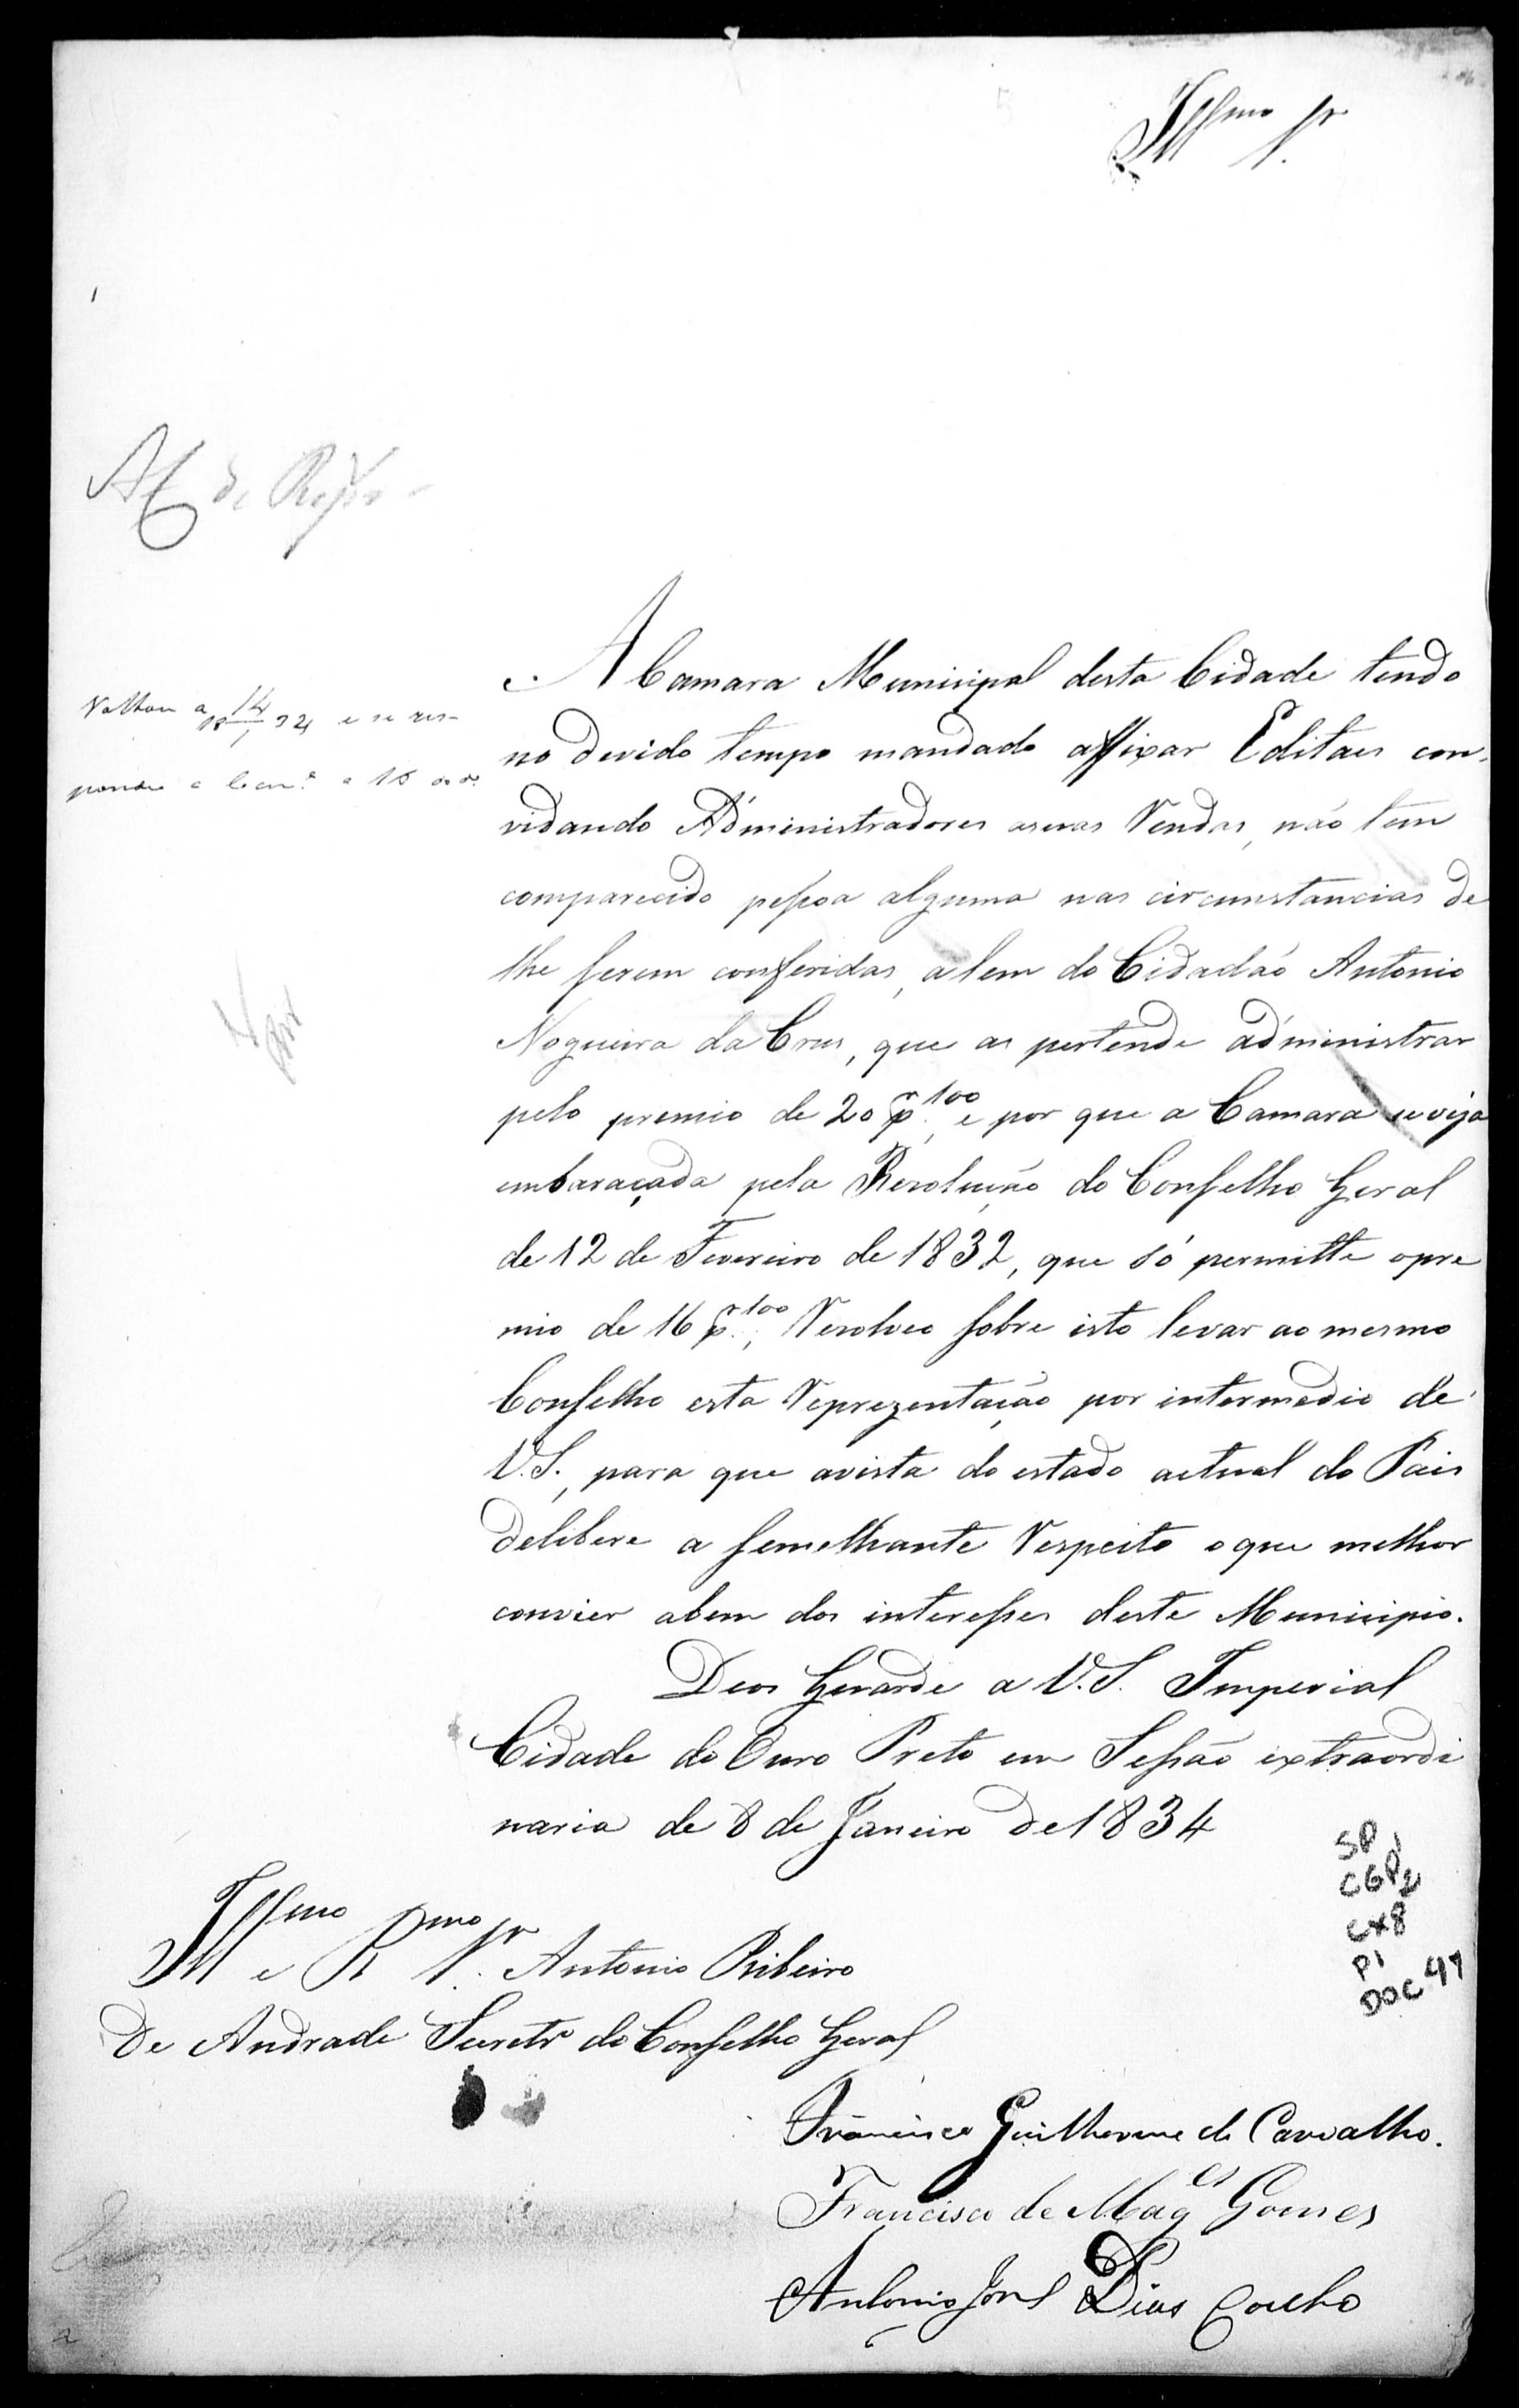 Illmo Sr.
A Camara Municipal desta Cidade tendo
no devido tempo mandado affixar Editaes con-
vidando Administradores asuas Vendas, não tem
comparecido pessoa alguma nas circunstancias de
lhe serem conferidas, alem do Cidadão Antonio
Nogueira da Crus, que as pertende administrar
pelo premio de 20 pr. 100, e por que a Camara seveja
embaraçada pela Resolução do Conselho Geral
de 12 de Fevereiro de 1832, que só permitte opre
mio de 16 pr. 100; Resolveo sobre isto levar ao mesmo
Conselho esta Reprezentação por intermedio de
V.S., para que avista do estado actual do Pais
delibere a semelhante Respeito oque melhor
convier abem dos interesses deste Municipio.
Deos Guarde a V.S. Imperial
Cidade do Ouro Preto em Sessão extraordi
naria de 8 de Janeiro de 1834
Illmo e Rmo Sr. Antonio Ribeiro
De Andrade Secretro do Conselho Geral
SP 1
CGP2
CX8
P1
DOC 41
Francisco Guilherme de Carvalho.
Francisco de Mages Gomes
Antonio José Dias Coelho